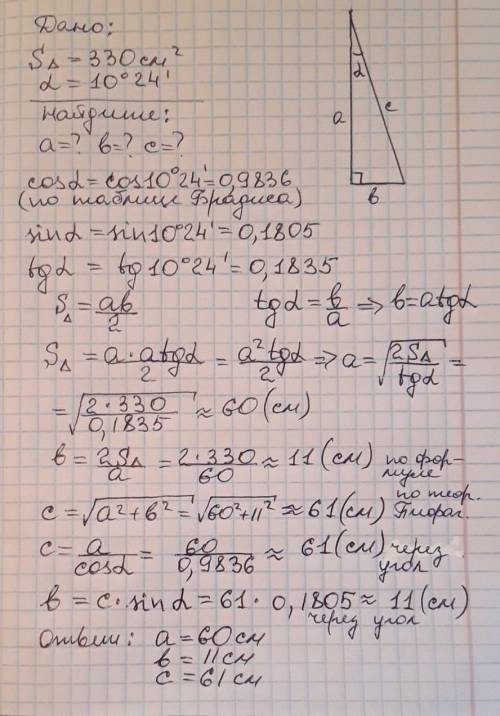 Дано:
S△ = 330 см²
α = 10°24'
найдите:
a=? b=? c=?
cosα = cos10°24' = 0,9836
(по таблице Брадиса)
sinα = sin10°24' = 0,1805
tgα = tg10°24' = 0,1835
S△ = ab/2 tgα = b/a => b = atgα
S△ = a·atgα/2 = a²tgα/2 => a = √(2S△/tgα) =
= √(2·330/0,1835) ≈ 60 (см)
b = 2S△/a = 2·330/60 ≈ 11 (см) по формуле
c = √(a²+b²) = √(60²+11²) ≈ 61 (см) по теор. Пифаг.
c = a/cosα = 60/0,9836 ≈ 61 (см) через угол
b = c·sinα = 61·0,1805 ≈ 11 (см)
через угол
Ответ: a = 60 см
b = 11 см
c = 61 см
α
a
c
b